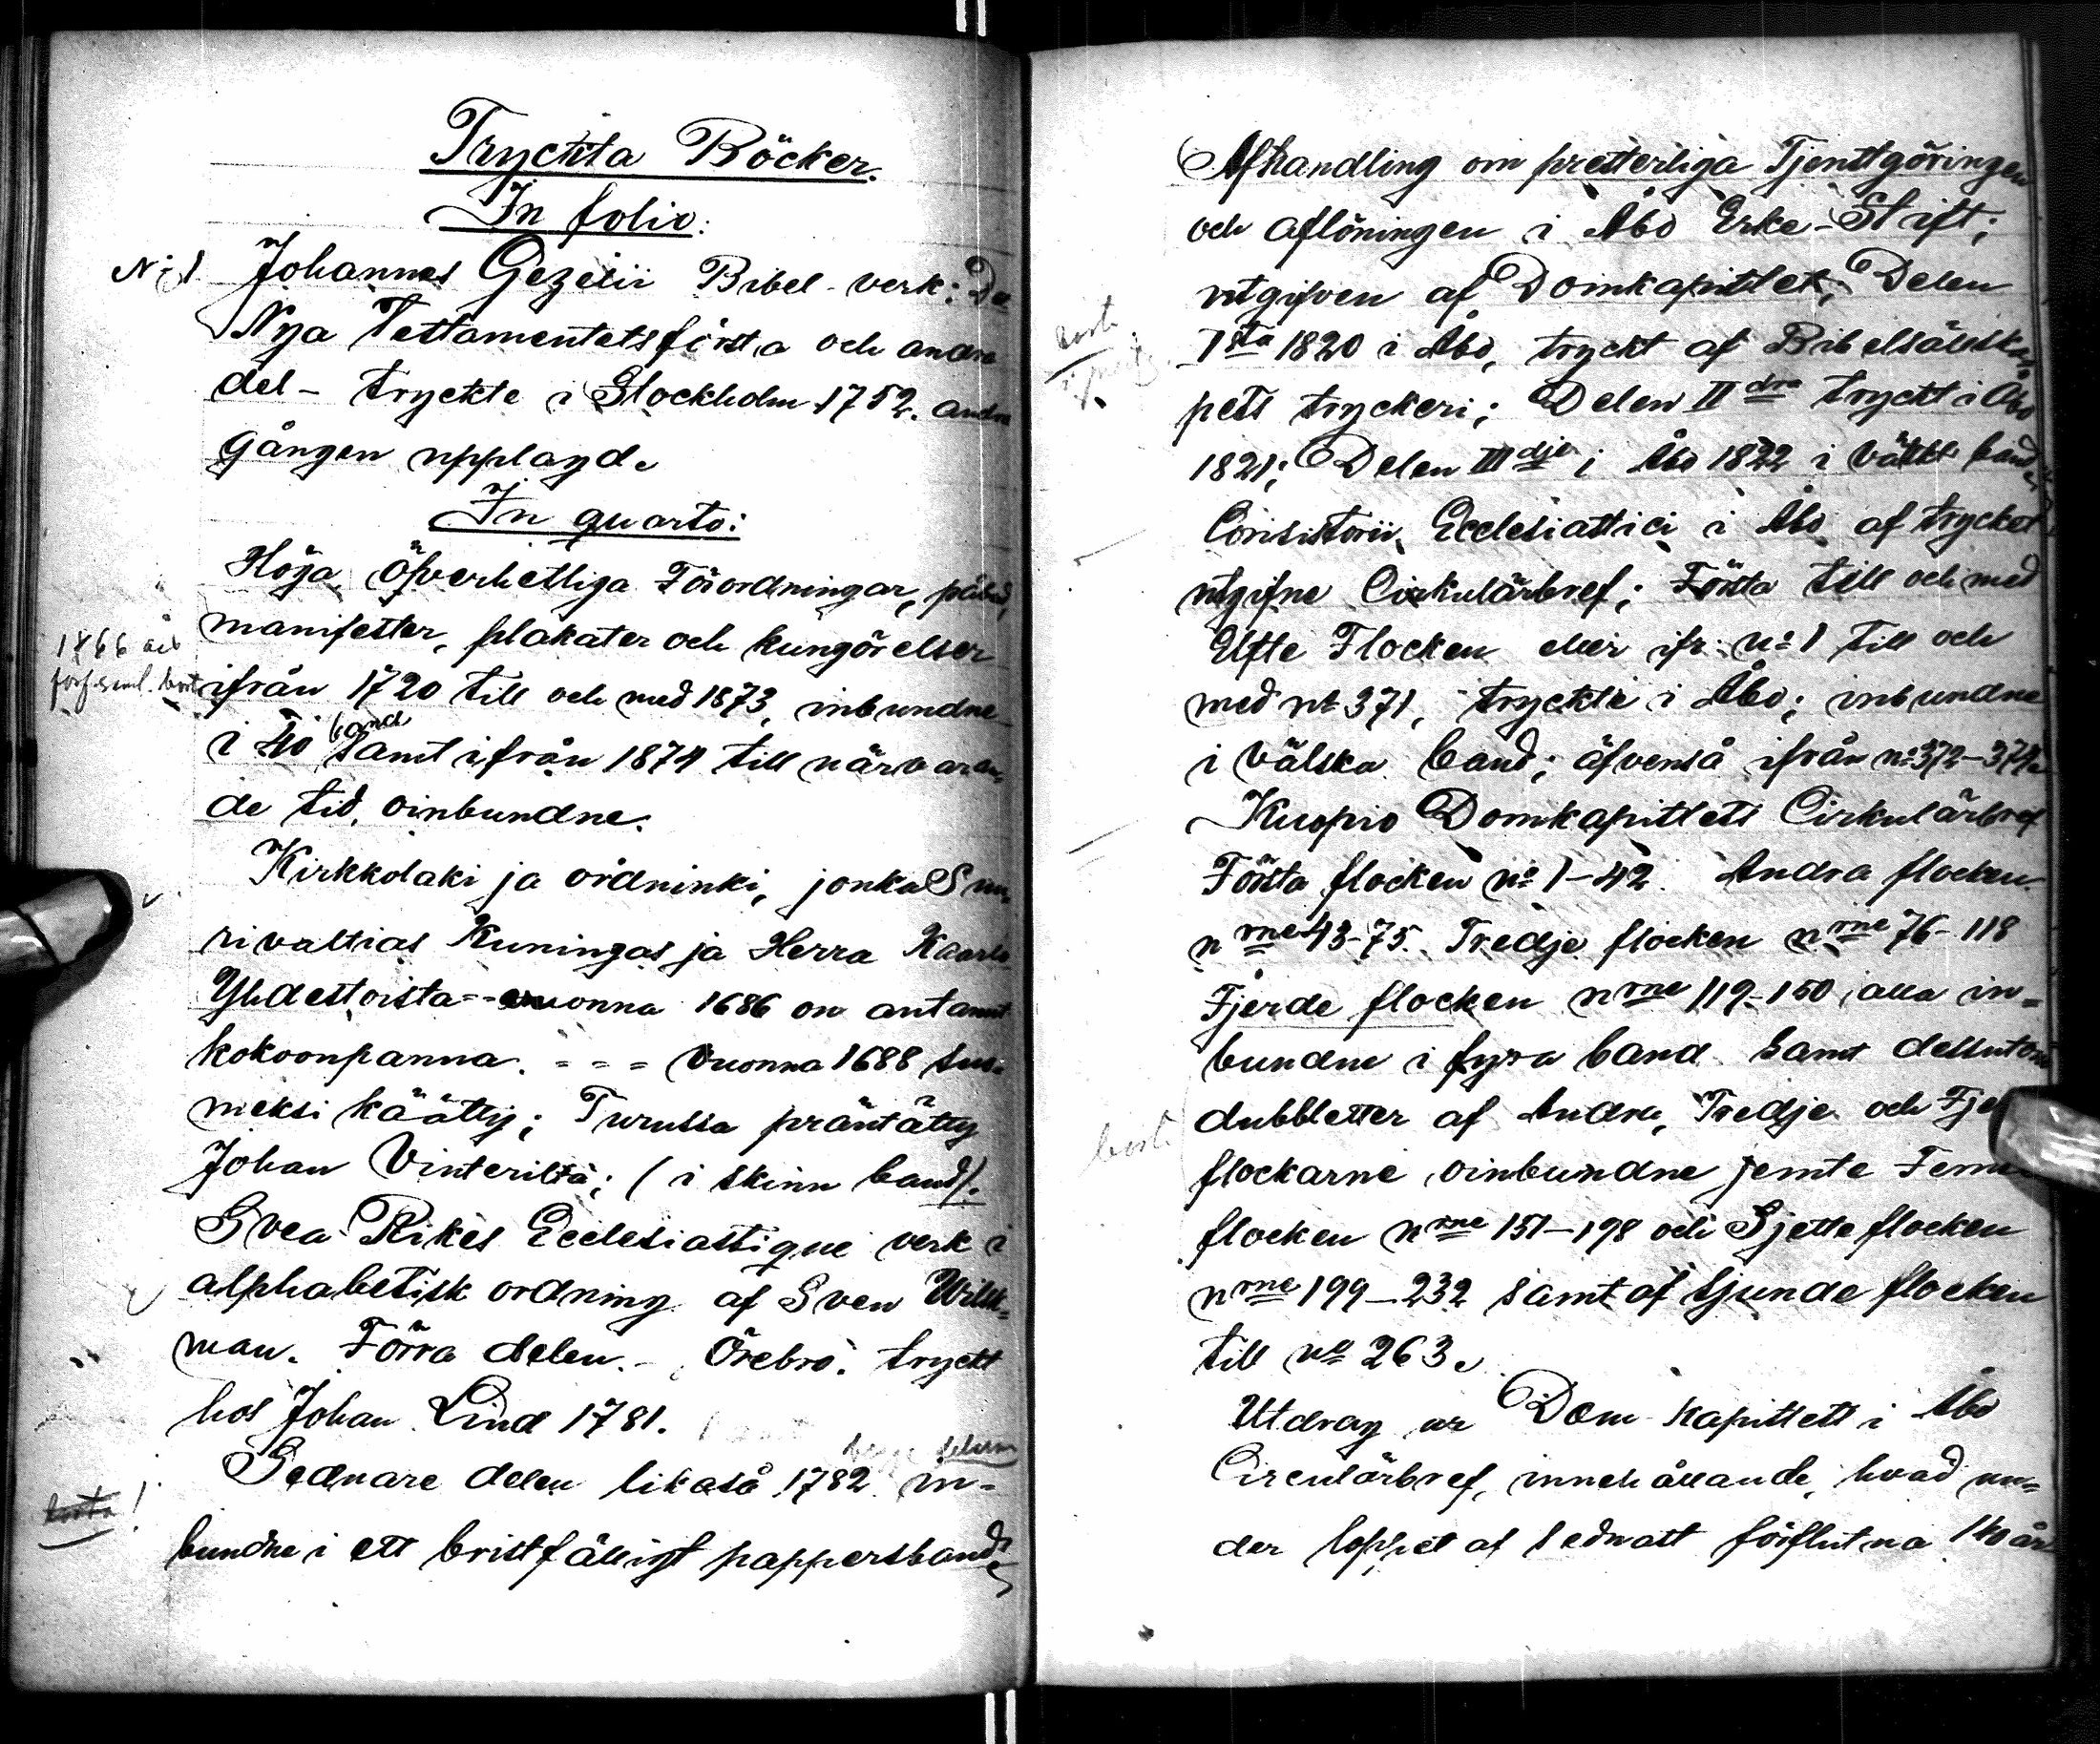 Tryckta Böcker.
In folio:
N:o 1 Johannes Gezelii Bibel-verk: De
Nya Testamentets första och andra
del - tryckte i Stockholm 1752. andra
gången upplagd.
In quarto:
Höga Öfverhetliga Förordningar, påbud,
manifester, plakater och kungörelser
1866 års
förf. saml. bort
ifrån 1720 till och med 1873, inbundne
i 40 band samt ifrån 1874 till närvaran-
de tid, oinbundne.
Kirkkolaki ja ordninki, jonka Suu-
rivaltias Kuningas ja Herra Kaarle
Yhdestoista - - vuonna 1686 on antanut
kokoonpanna. = = = Vuonna 1688 Suo-
meksi käätty; Turussa präntätty
Johan Vinteriltä; (i skinn band).
Svea Rikes Ecclesiastique verk i
alphabetisk ordning af Sven Wilsk-
man. Förra delen. - Örebro. tryckt
hos Johan Lind 1781.
delarne
Sednare delen likaså 1782 in-
borta!
bundne i ett bristfälligt pappersband.
Afhandling om presterliga Tjenstgöringen
och aflöningen i Åbo Erke-Stift;
utgifven af Domkapitlet; Delen
bort
Ista 1820 i Åbo, tryckt af Bibelsällska-
pets tryckeri; Delen IIdra tryckt i Åbo
1821; Delen IIIdje i Åbo 1822 i välskt band.
Consistorii Ecclesiastici i Åbo af trycket
utgifne Cirkulärbref; Första till och med
Elfte Flocken eller ifr: n:o 1 till och
med n:o 371, tryckte i Åbo; inbundne
i välska band; äfvenså ifrån n:o 372-374.
Kuopio Domkapitlets Cirkulärbref
Första flocken n:o 1-42. Andra flocken
nrne 43-75. Tredje flocken nrne 76-118
Fjerde flocken nrne 119-150, alla in=
bundne i fyra band. Samt dessutom
dubbletter af Andra, Tredje och Fje
bort
flockarne oinbundne jemte Femte
flocken nrne 151-198 och Sjette flocken
nrne 199-232 samt af sjunde flocken
till no 263.
Utdrag ur Dom-kapitlets i Åbo
Circulärbref, innehållande, hvad un=
der loppet af sednast förflutna 140 år